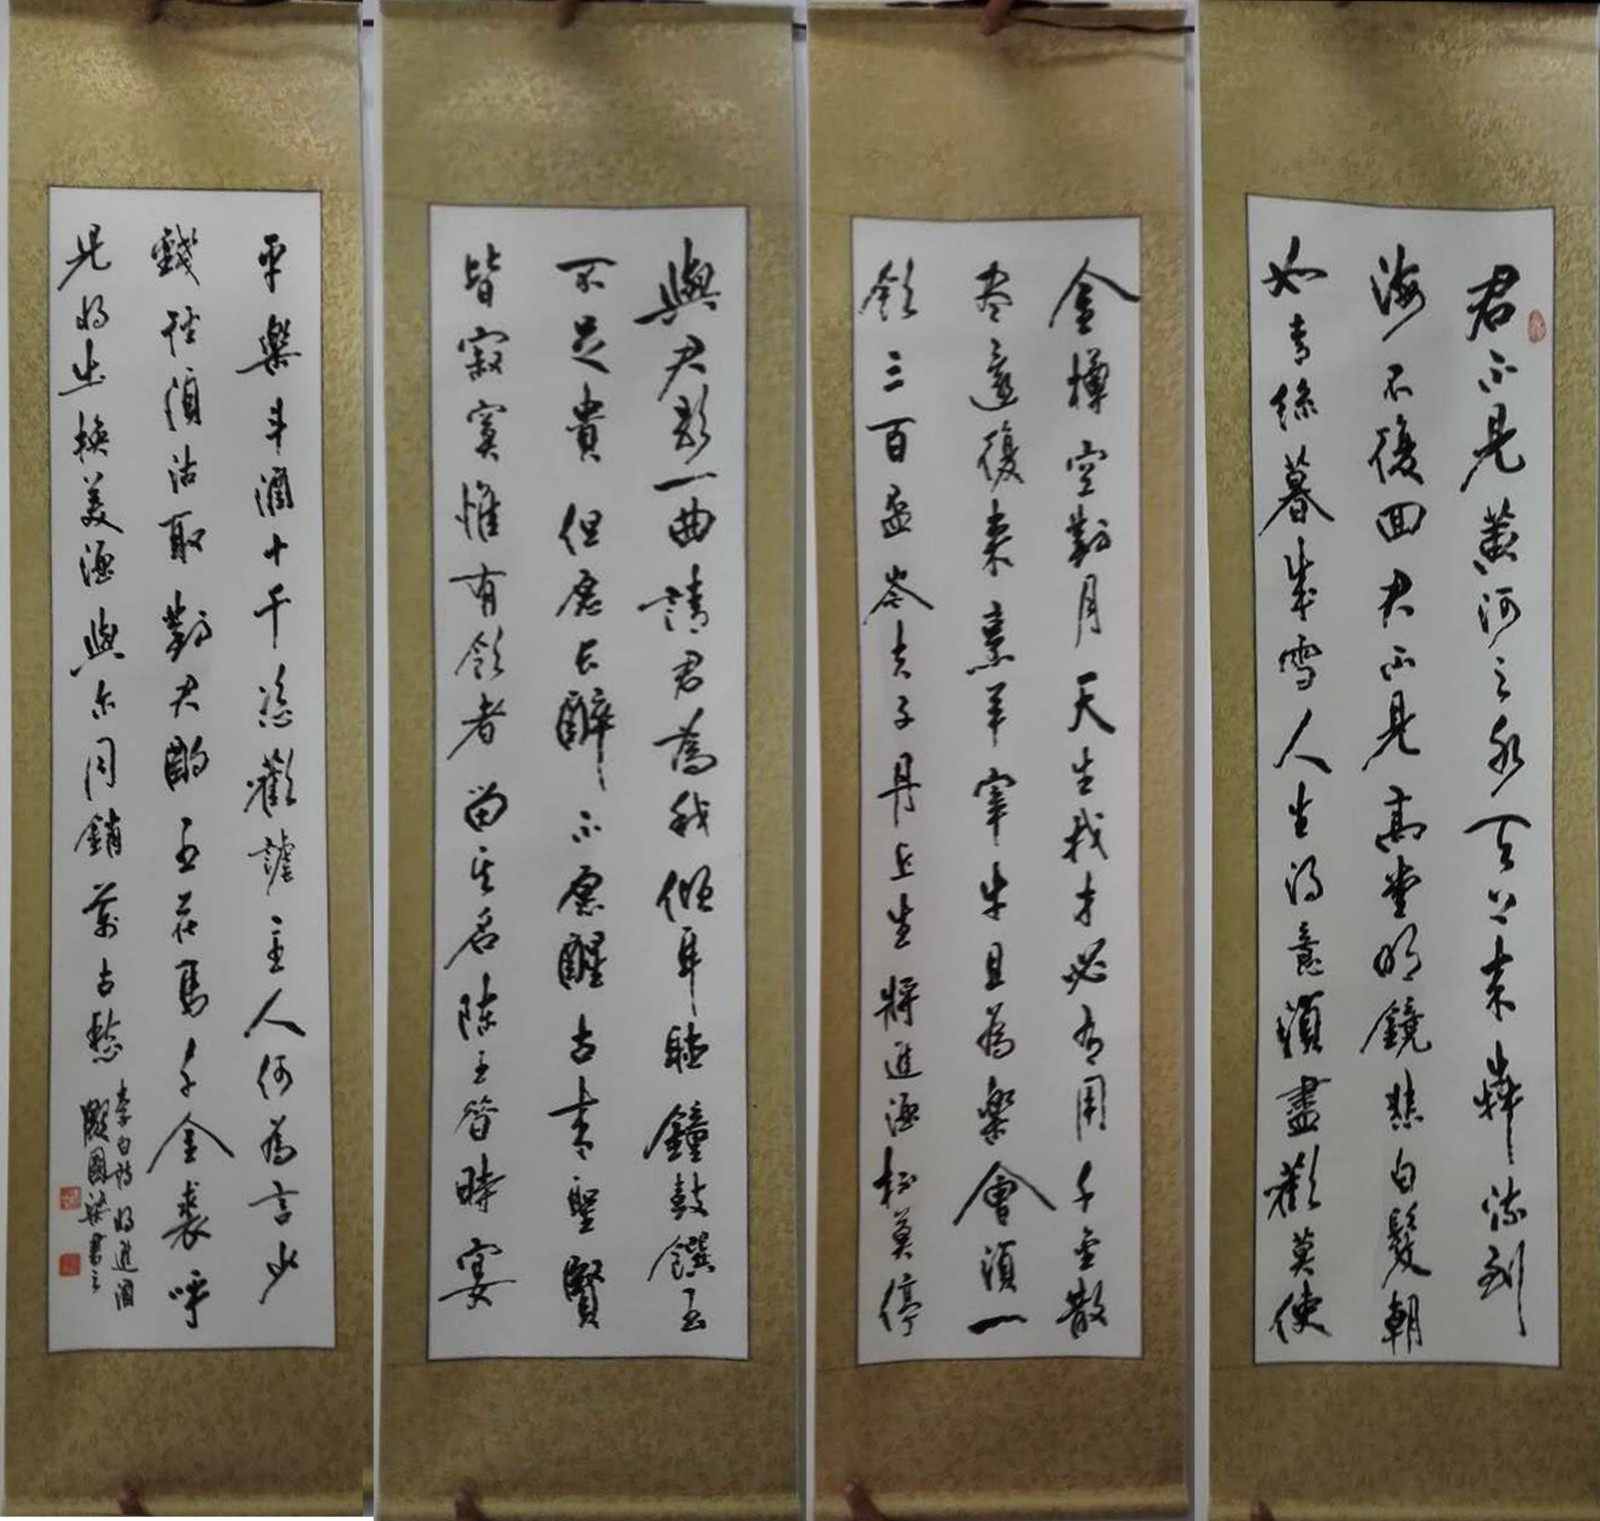 君不見黃河之水天上來奔流到
海不復回君不見高堂明鏡悲白髮朝
如青絲暮成雪人生得意須盡歡莫使
金樽空對月天生我才必有用千金散
尽還復來烹羊宰牛且為樂會須一
飲三百盃岑夫子丹丘生將進酒杯莫停
與君歌一曲請君為我傾耳聽鐘鼓饌玉
不足貴但愿長醉不愿醒古來聖賢
皆寂寞惟有飲者留其名陳王昔時宴
平樂斗酒十千恣歡謔主人何為言少
錢徑須沽取對君酌五花馬千金裘呼
兒將出換美酒與尔同銷萬古愁
李白詩將進酒
國梁書之